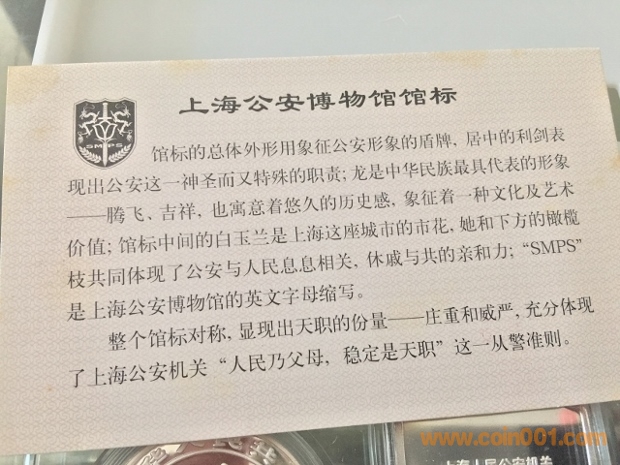 上海公安博物馆馆标
SMPS
馆标的总体外形用象征公安形象的盾牌，居中的利剑表
现出公安这一神圣而又特殊的职责；龙是中华民族最具代表的形象
——腾飞、吉祥，也寓意着悠久的历史感，象征着一种文化及艺术
价值；馆标中间的白玉兰是上海这座城市的市花，她和下方的橄榄
枝共同体现了公安与人民息息相关，休戚与共的亲和力；“SMPS”
是上海公安博物馆的英文字母缩写。
整个馆标对称，显现出天职的份量——庄重和威严，充分体现
了上海公安机关“人民乃父母，稳定是天职”这一从警准则。
www.coin001.com
上海人民公安机关